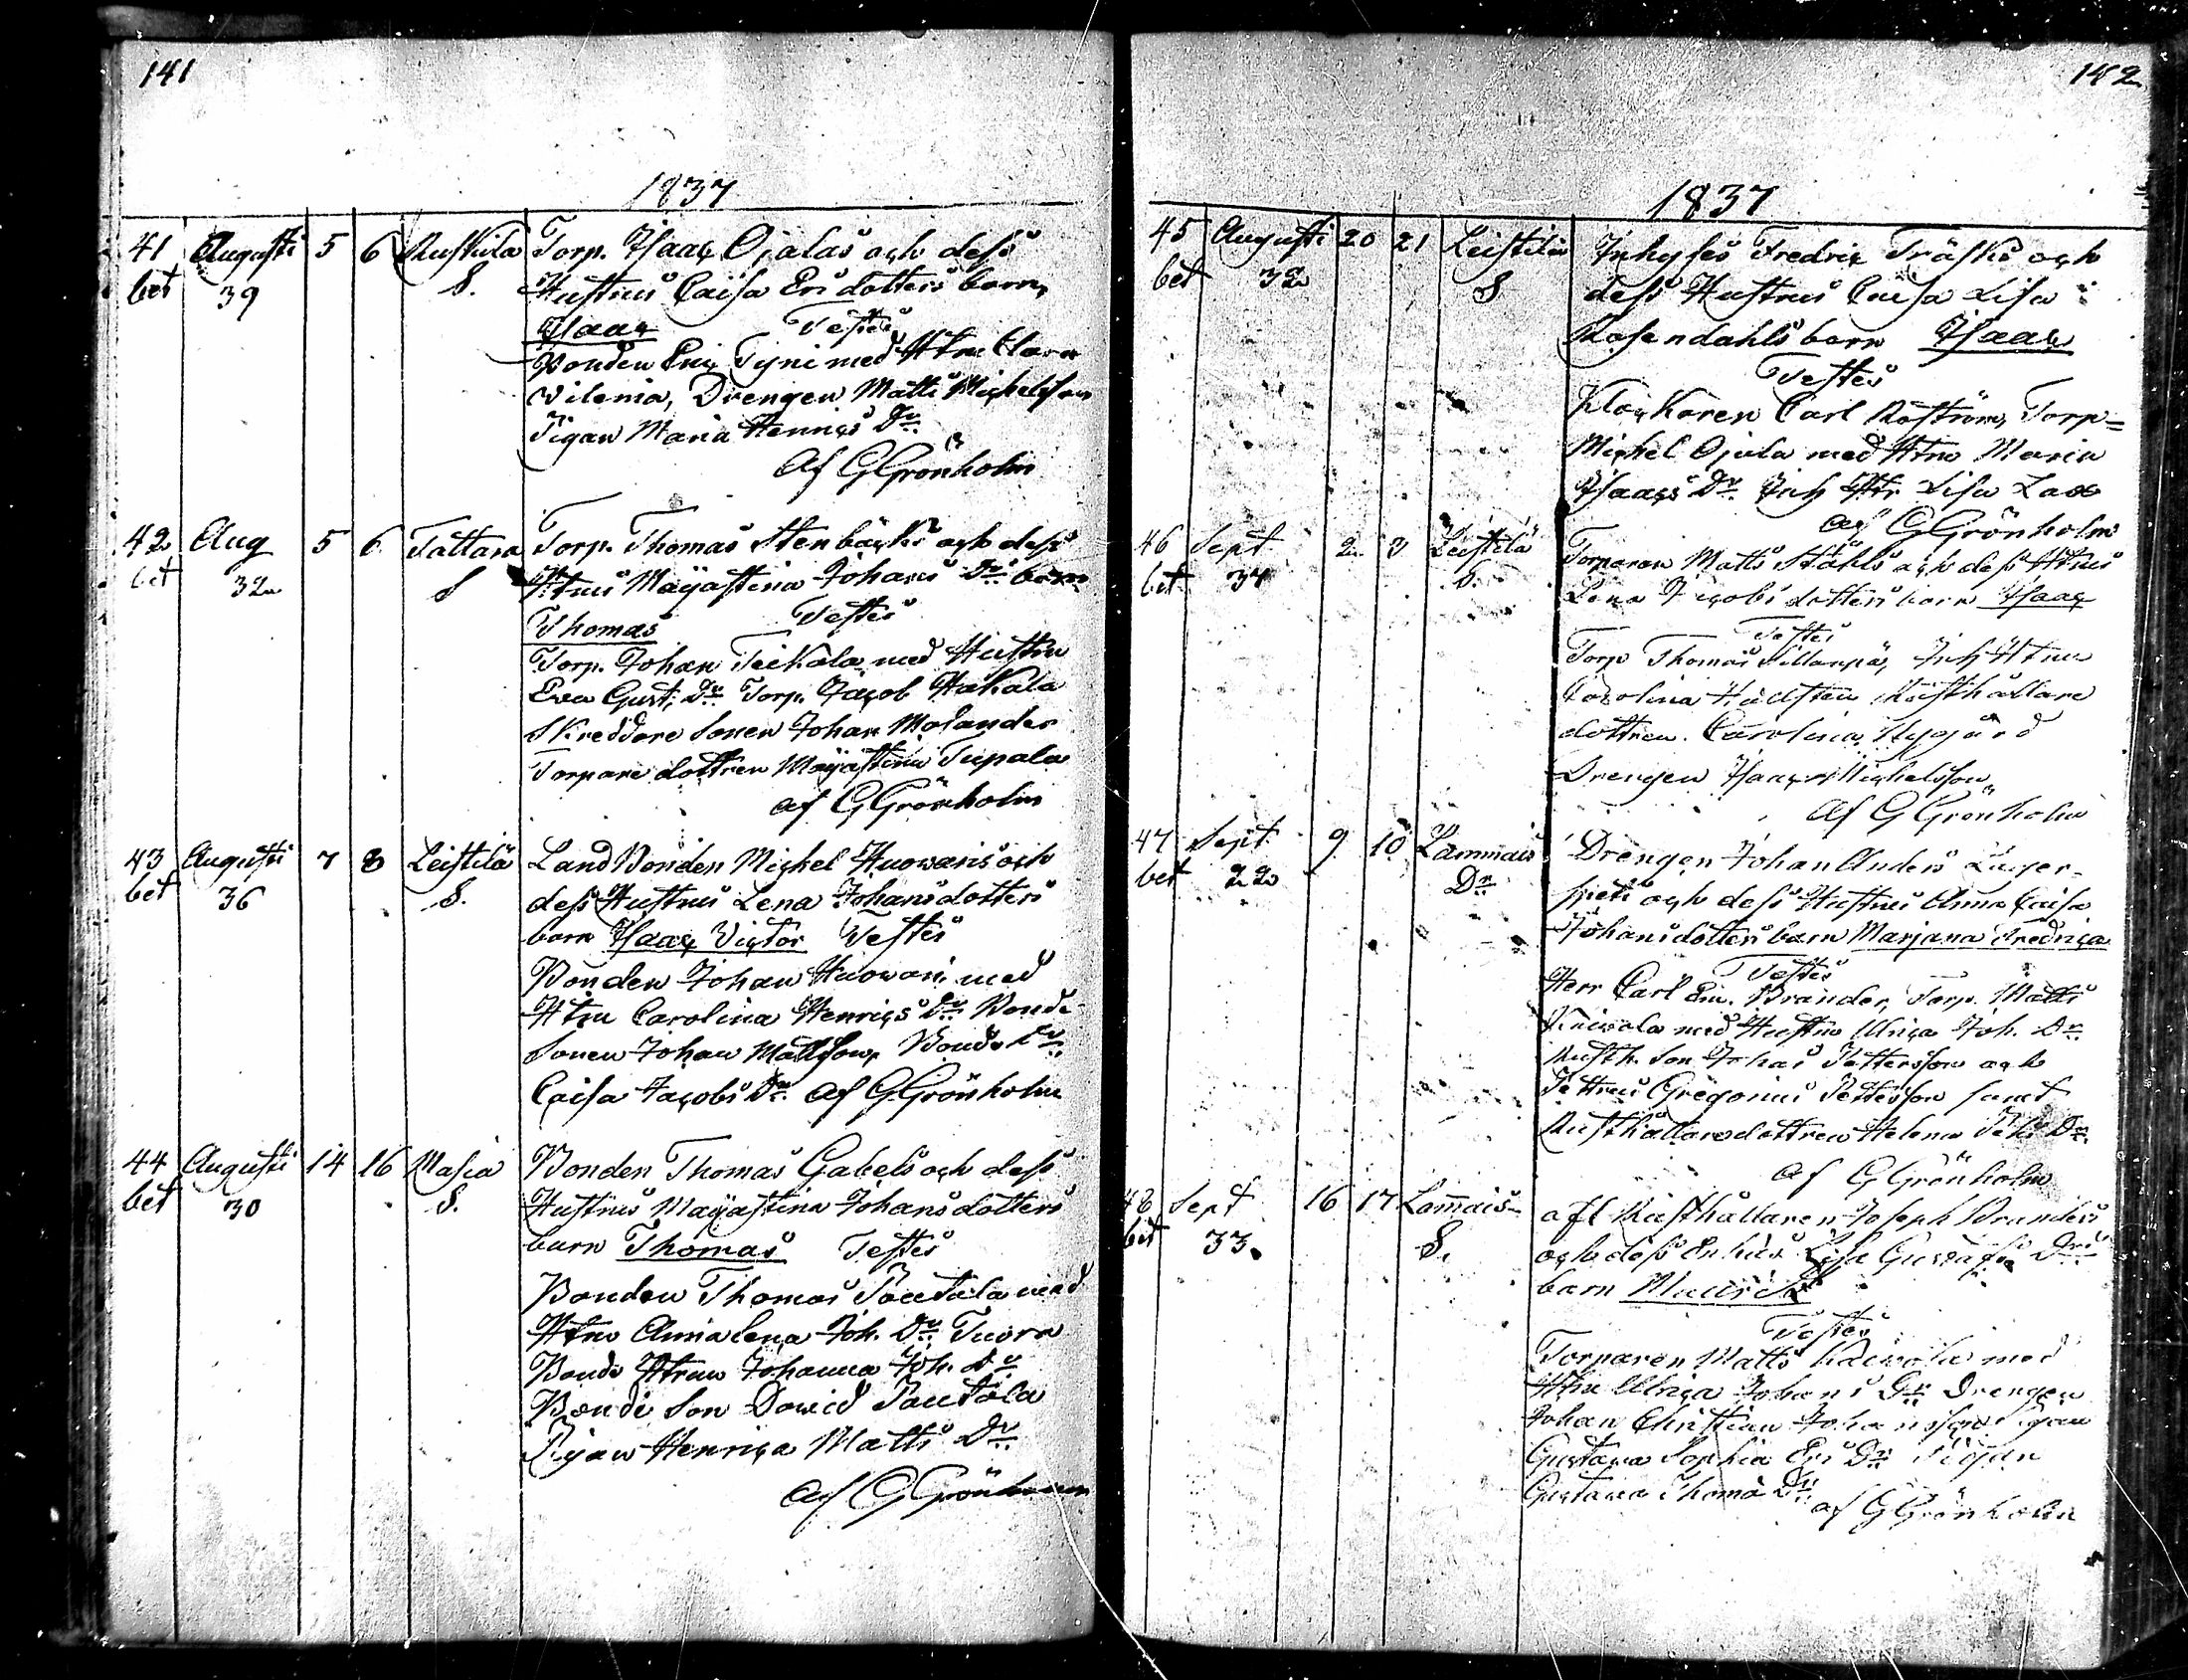 141
1837
41 Augusti 5 6 Ruskila Torp. Isaac Ojalas och dess
bet 39 S. Hustrus Caisa Ers dotters barn
Isaac Testes
Bonden Eric Tyni med Htru Clara
Vilenia, Drengen Matts Michelsson
Pigan Maria Henrics Dr.
Af G Grönholm
42 Aug 5 6 Tattara Torp. Thomas Stenbäcks och dess
bet 32 S Htrus Majastina Johans Drs barn
Thomas Testes
Torp. Johan Teikala med Hustru
Eva Gust. Dr Torp. Jacob Hakala
Skreddare Sonen Johan Molander
Torpare dottren Majastina Tupala
af G Grönholm
43 Augusti 7 8 Leistilä Land Bonden Michel Huovaris och
bet 36 S. dess Hustrus Lena Johansdotters
barn Isaac Victor Testes
Bonden Johan Huovari med
Htru Carolina Henrics Dr Bonde
Sonen Johan Mattsson, Bonde Dr
Caisa Jacobs Dr. af G Grönholm
44 Augusti 14 16 Masia Bonden Thomas Gabels och dess
bet 30 S. Hustrus Majastina Johansdotters
barn Thomas Testes
Bonden Thomas Pautola med
Htru Annalena Joh. Dr Tuorn
Bonde Htrun Johanna Joh. Dr
Bonde Son David Pautola
Pigan Henrica Matts Dr
af G Grönholm
142
1837
45 Augusti 20 21 Leistilä Inhyses Fredric Träsks och
bet 32 S dess Hustrus Caisa Lisa
Rosendahls barn Isaac
Testes
Klockaren Carl Roström, Torp=
Michel Ojala med Htru Maria
Isaacs Dr Inh Htr Lisa Lax
af G Grönholm
46 Sept 2 3 Leistilä Torparen Matts Ståhls och dess Htrus
bet 34 S. Lena Jacobs dotters barn Isaac
Testes
Torp Thomas Sillanpä, Inh Htru
Carolina Rusthållare
dottren Carolina Nygård
Drengen Isaac Michelsson
af G Grönholm
47 Sept 9 10 Lammais Drengen Johan Anders Lager-
bet 22 Dr och dess Hustrus Anna Caisa
Johansdotters barn Marjana Fredrica
Testes
Herr Carl Em. Brander, Torp. Matts
Kaivola med Hustru Ulrica Joh. Dr
Rusth. Son Johan Pettersson och
Pettrus Gregorius Pettersson samt
Rusthållaredottren Helena Dr
af G Grönholm
48 Sept 16 17 Lammais afl Rusthållaren Joseph Branders
bet 33 S. och dess Enkas Lisa Gustafs Drs
barn Maurits
Testes
Torparen Matts Kaivola med
Htru Ulrica Johans Dr Drengen
Johan Christian Johansson Pigan
Gustava Sophia Ers Dr Pigan
Gustava Thoma Dr
af G Grönholm